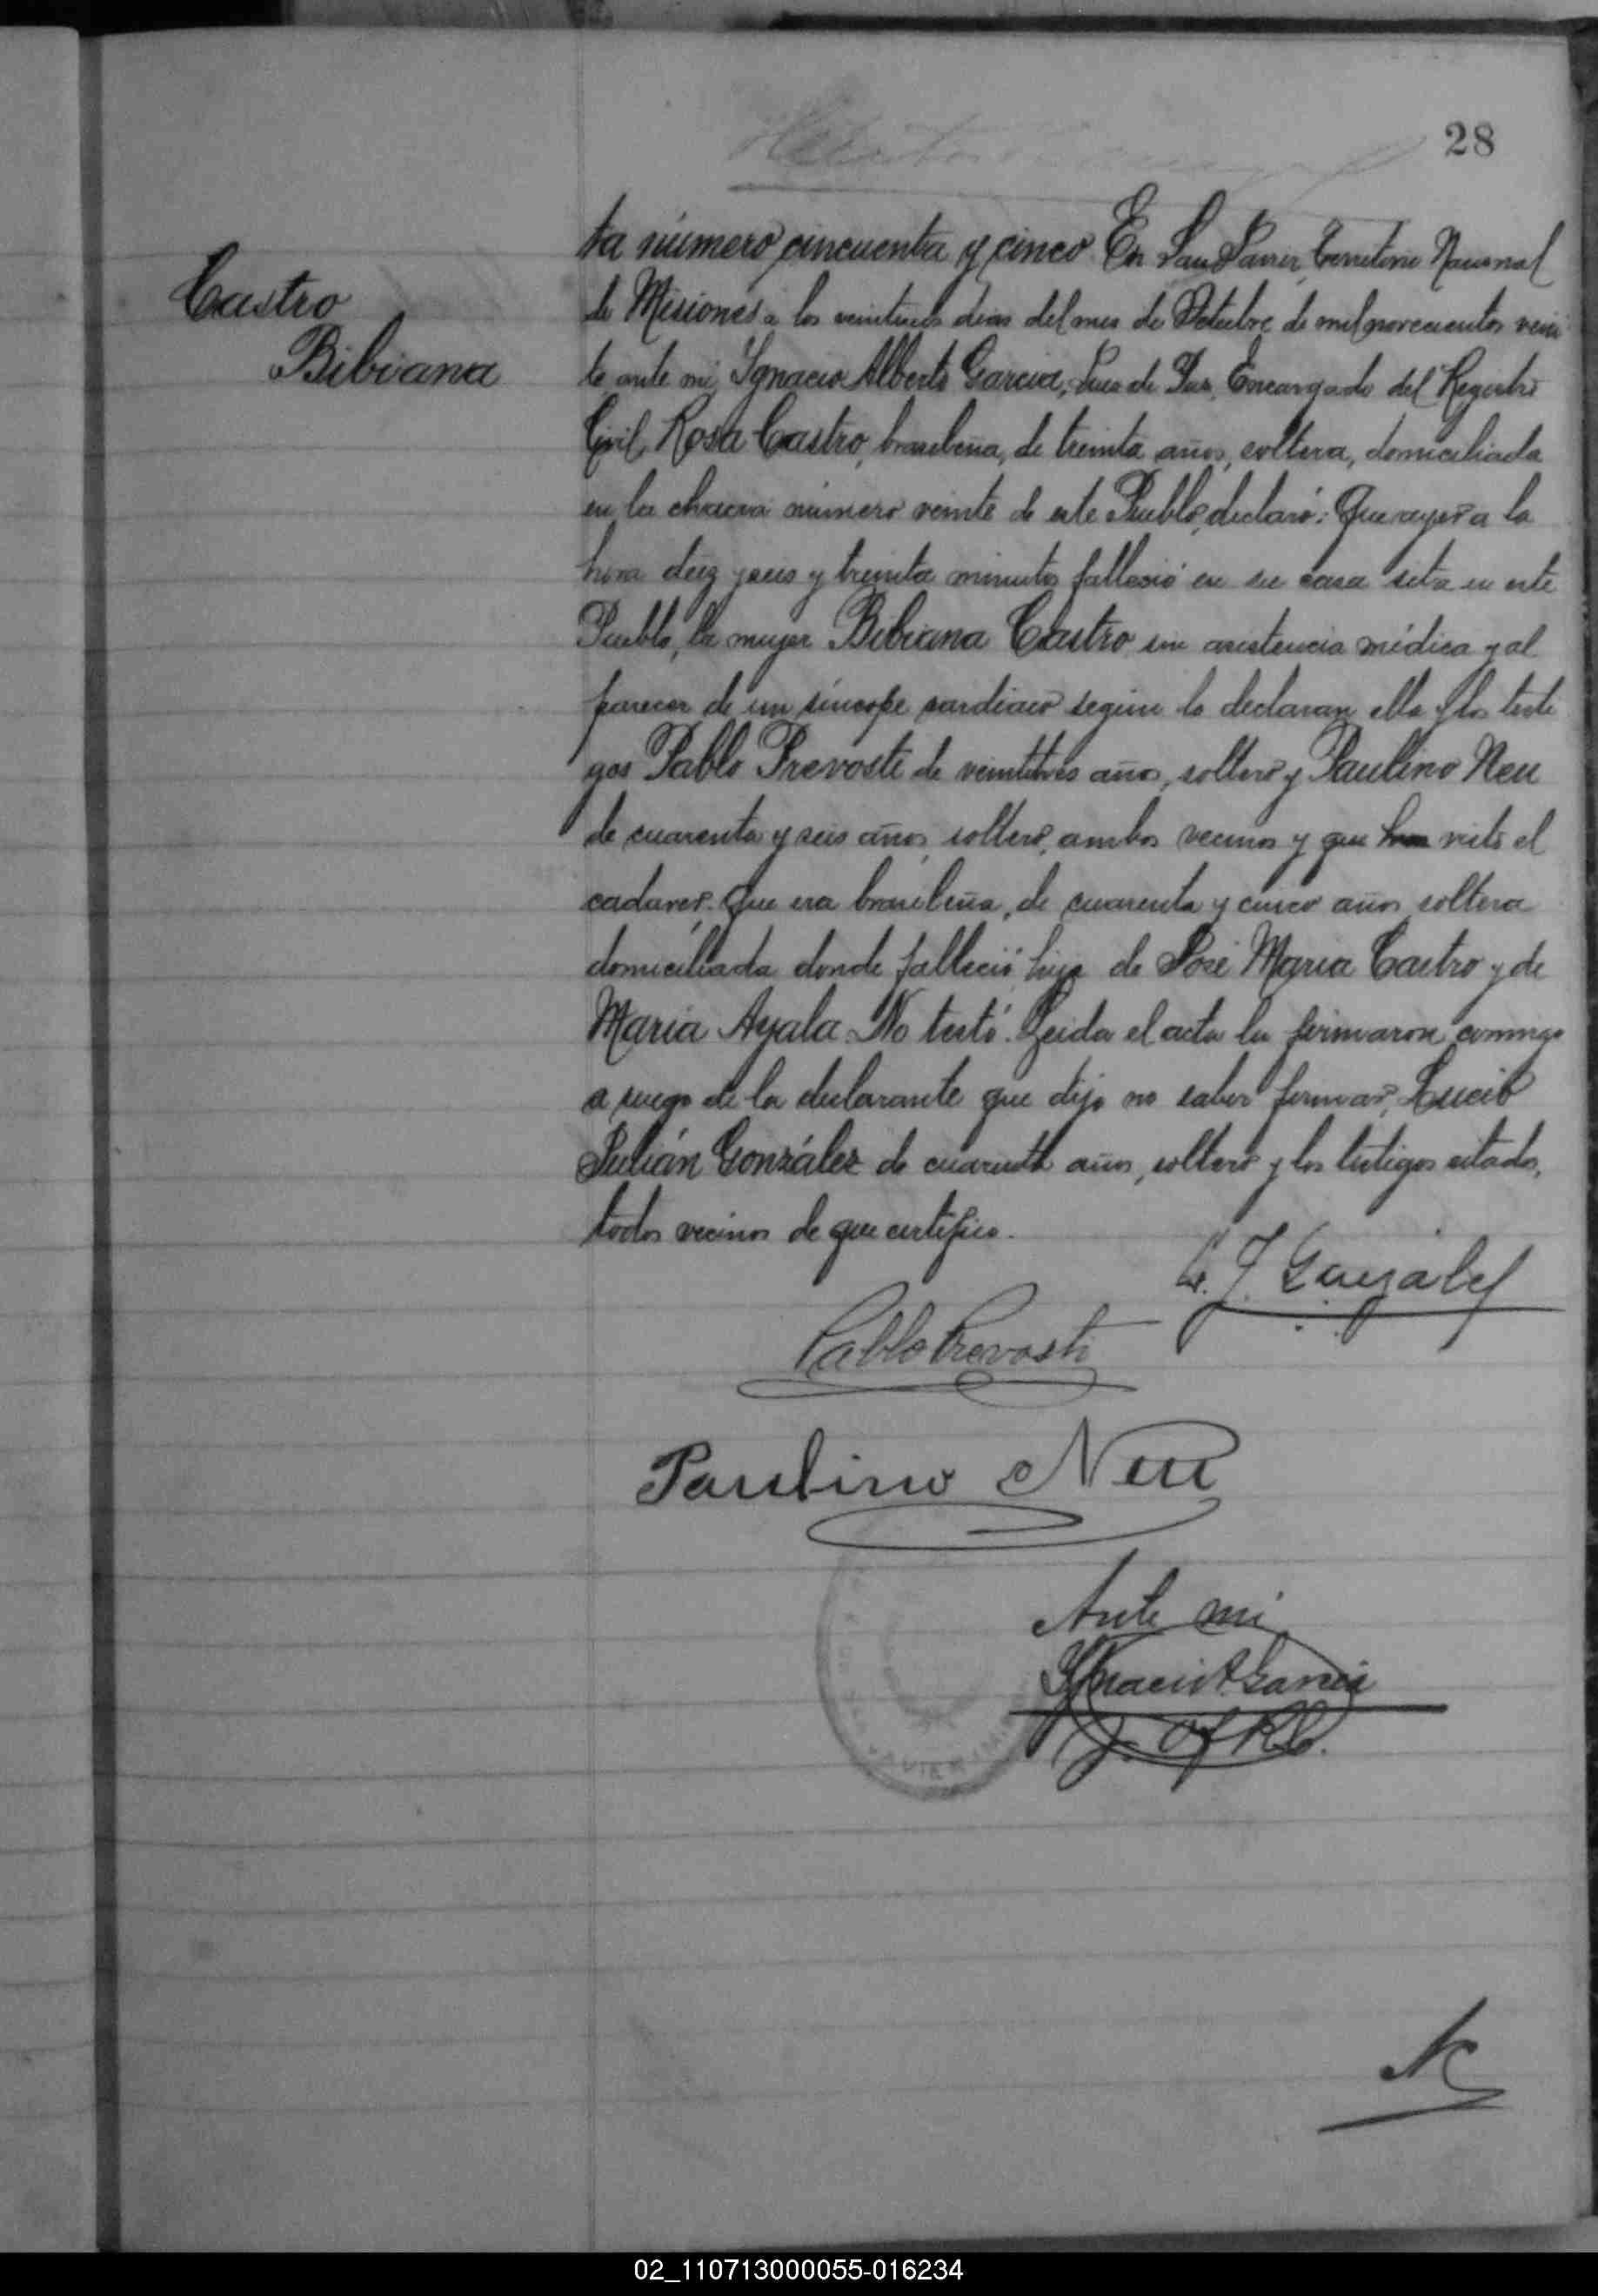 28
Castro
Bibiana
ta número cincuenta y cinco En San Javier, Territorio Nacional
de Misiones a los dias del mes de Octubre de mil novecientos vein
te ante mi, Ignacio Alberto Garcia, Juez de Paz, Encargado del Registro
Civil, Rosa Castro, brasileña, de treinta años, soltera, domiciliada
en la chacra número veinte de este Pueblo, declaró: Que ayer a la
hora diez y seis y treinta minutos falleció en su casa sita en este
Pueblo, la mujer Bibiana Castro sin asistencia médica y al
parecer de un síncope cardiaco segun lo declaran ella y los testi
gos Pablo Prevosti de veintitres años, soltero y Paulino Neu
de cuarenta y seis años soltero, ambos vecinos y que han visto el
cadaver. Que era brasileña, de cuarenta y cinco años soltera
domiciliada donde falleció, hija de José Maria Castro y de
Maria Ayala. No testó. Leida el acta la firmaron conmigo
a ruego de la declarante que dijo no saber firmar, Lucio
Julián González de cuarenta años, soltero y los testigos citados,
todos vecinos de que certifico.
L. J. González
Pablo Prevosti
Paulino Neu
Ante mi
Ignacio A. Garcia
J.
02_110713000055-016234